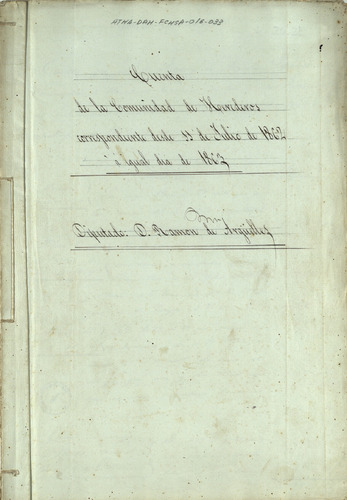 HTNG-DAH-FCHSA-016-033
Cuenta
de la Comunidad de Herederos
correspondiente desde 11 de Julio de 1862
á Igual dia de 1863
Diputado D. Ramon de Argüelles